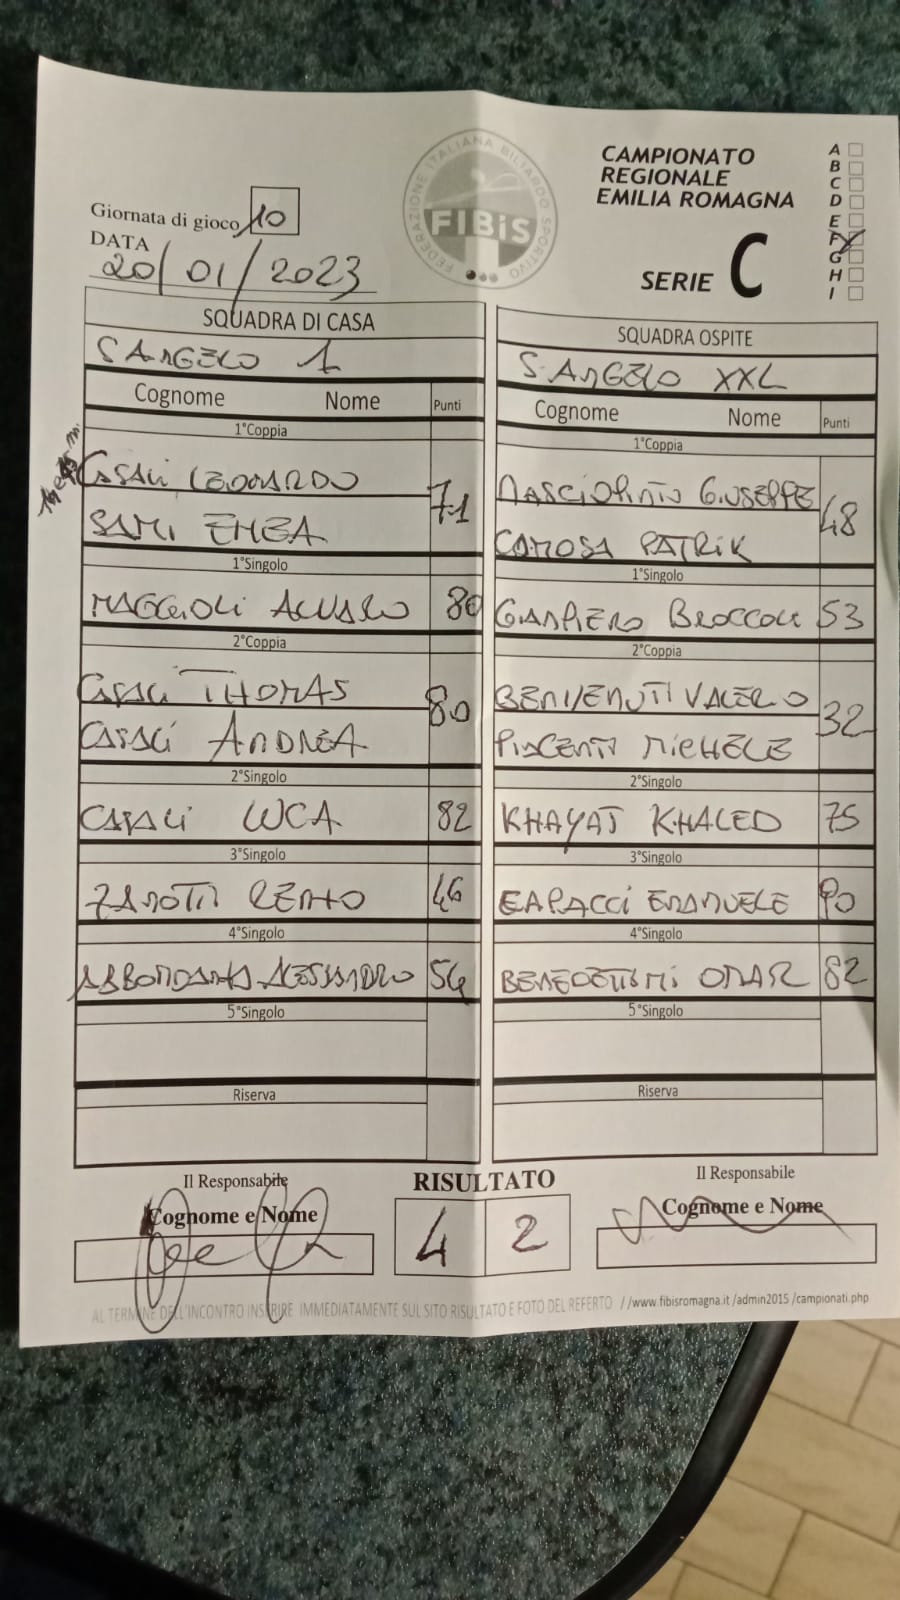 FEDERAZIONE ITALIANA BILIARDO SPORTIVO
FIBiS
CAMPIONATO
REGIONALE
EMILIA ROMAGNA
SERIE C
A
B
C
D
E
F X
G
H
I
Giornata di gioco 10
DATA
20/01/2023
SQUADRA DI CASA
S. ANGELO 1
Cognome Nome Punti
1°Coppia
CASALI LEONARDO
SAMI ENEA
71
1°Singolo
MAGGIOLI ALVARO 80
2°Coppia
CASALI THOMAS
CASALI ANDREA
80
2°Singolo
CASALI LUCA 82
3°Singolo
ZANOTTI RENATO 46
4°Singolo
ABBONDANZA ALESSANDRO 54
5°Singolo
Riserva
Il Responsabile
Cognome e Nome
SQUADRA OSPITE
S. ANGELO XXL
Cognome Nome Punti
1°Coppia
GIUSEPPE
COMOSA PATRIK
48
1°Singolo
GIANPIERO BROCCOLI 53
2°Coppia
BENVENUTI VALERIO
PIACENTI MICHELE
32
2°Singolo
KHAYAT KHALED 75
3°Singolo
EMANUELE 90
4°Singolo
BENEDETTINI OMAR 82
5°Singolo
Riserva
Il Responsabile
Cognome e Nome
RISULTATO
4 2
AL TERMINE DELL'INCONTRO INSERIRE IMMEDIATAMENTE SUL SITO RISULTATO E FOTO DEL REFERTO //www.fibisromagna.it /admin2015 /campionati.php